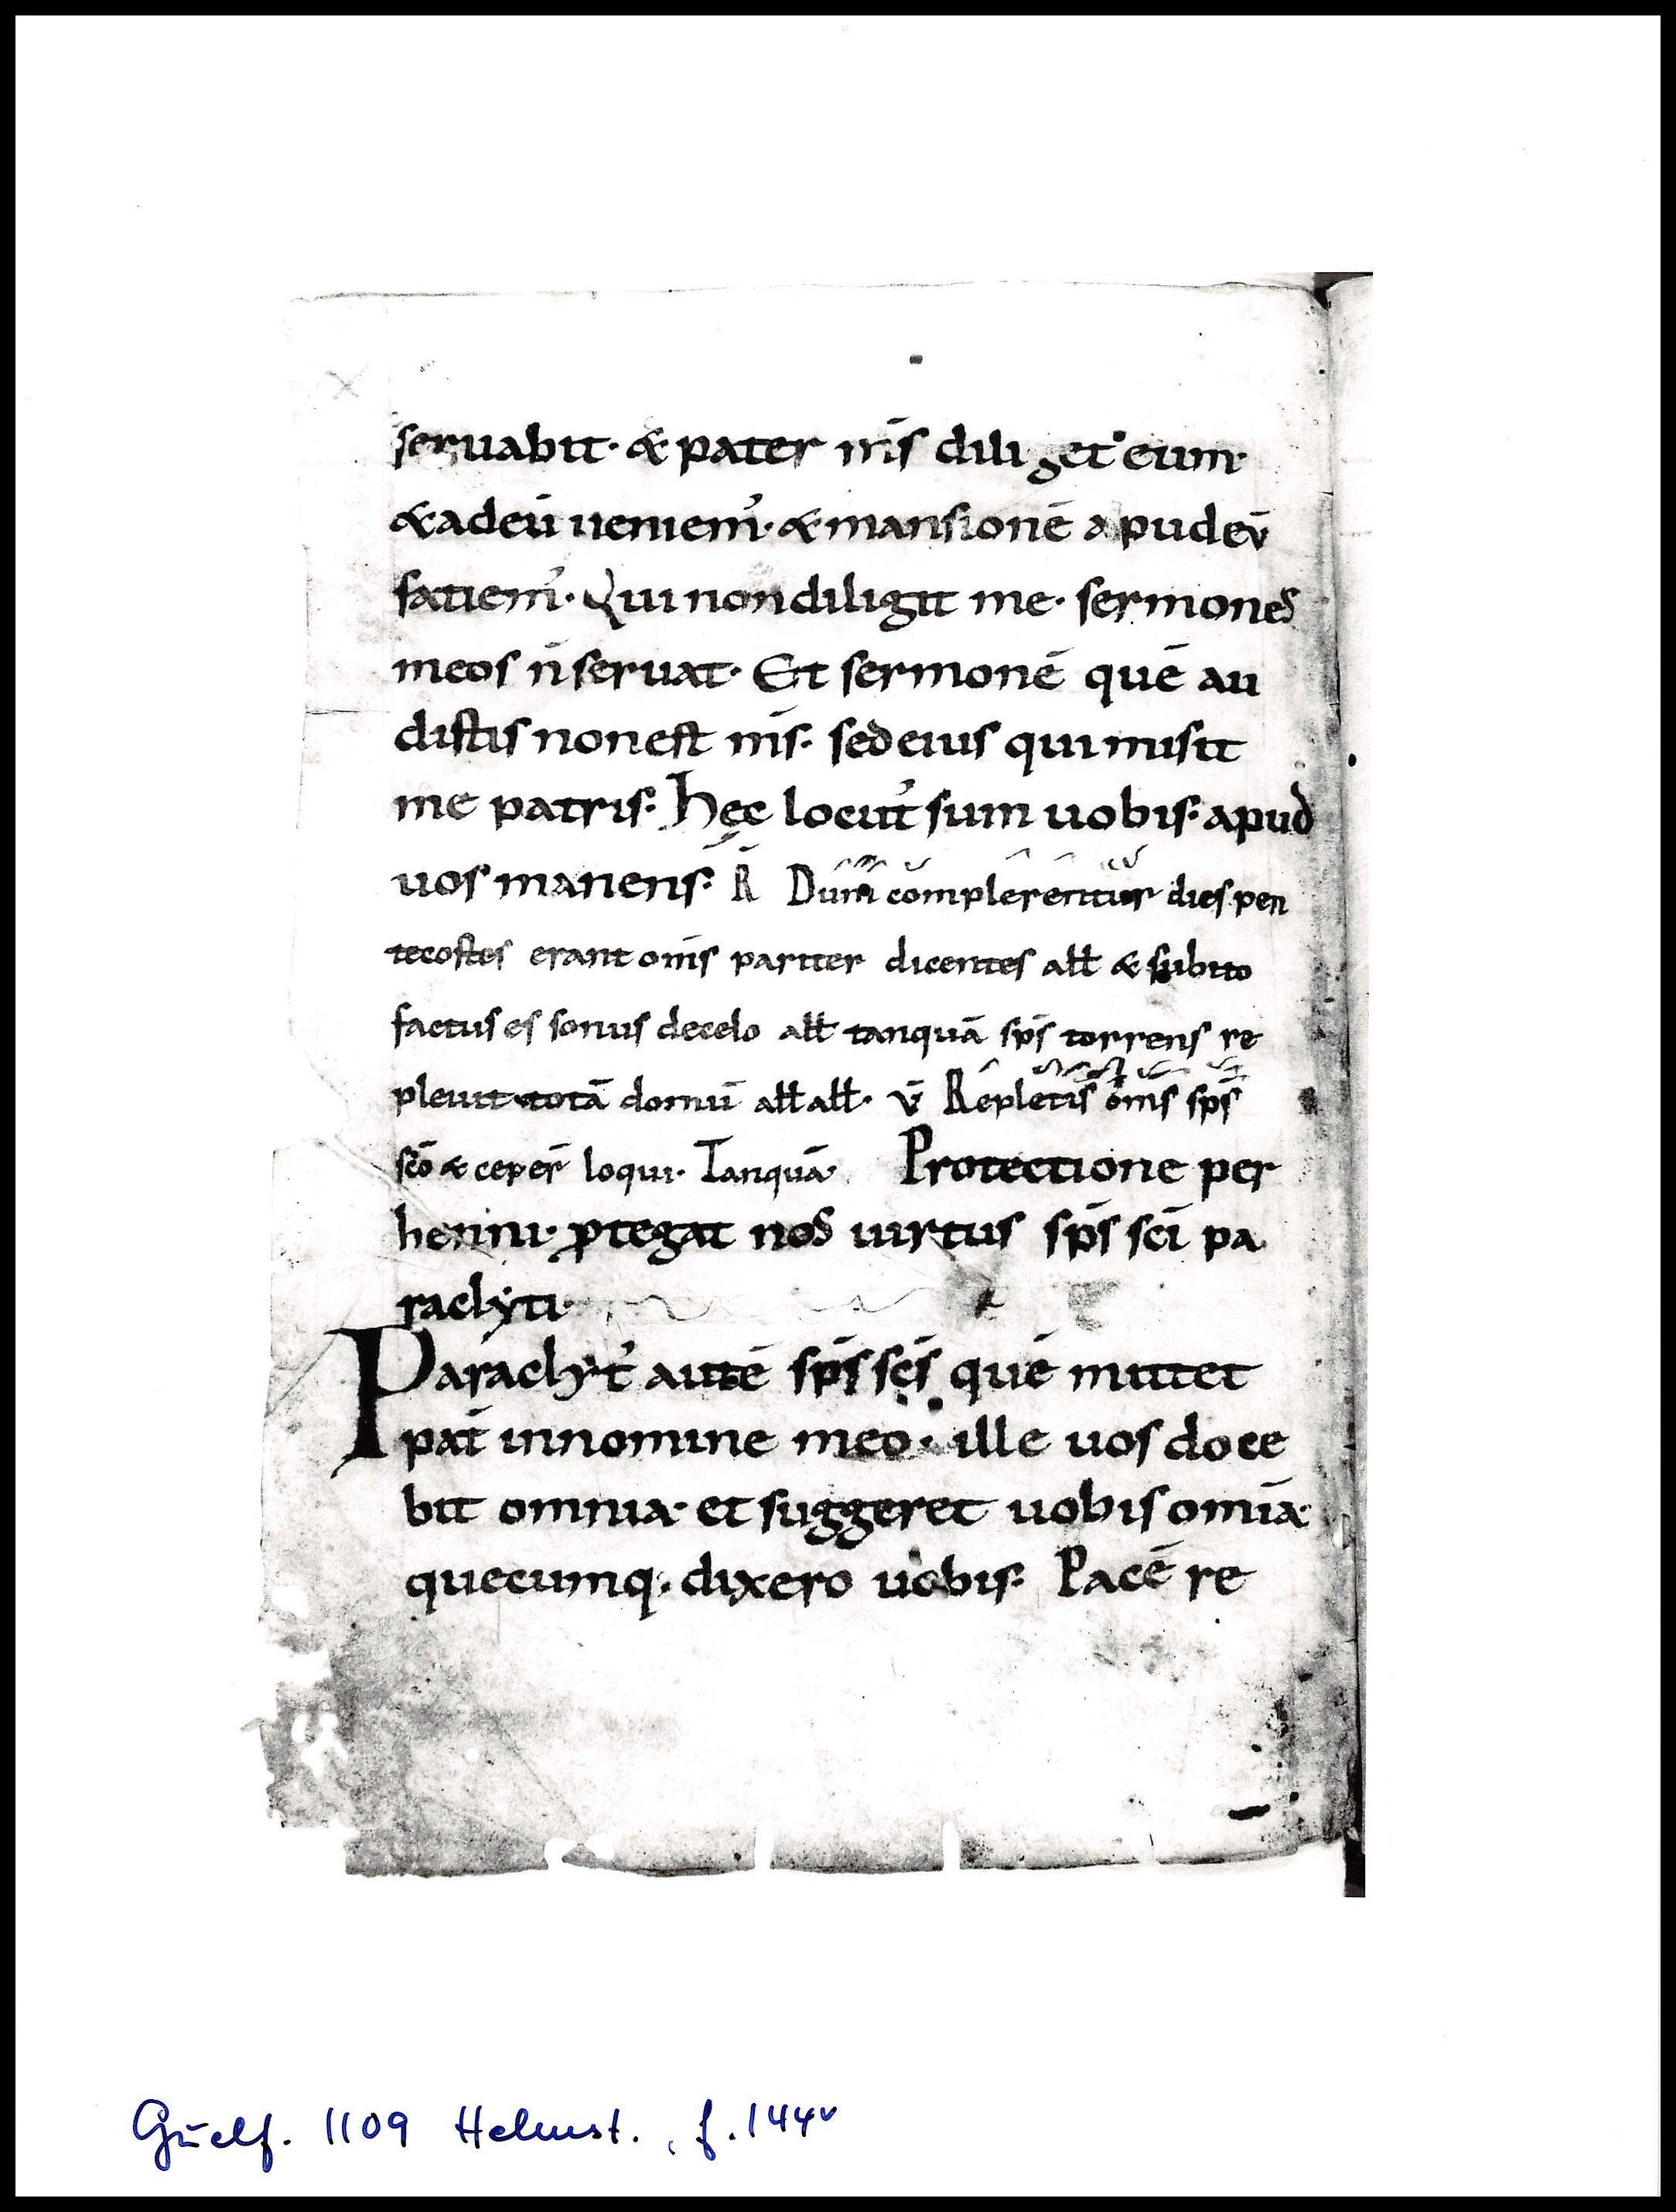 seruabit· & pater m̄s diliget eum·
& adeū ueniem᾽· & mansionē apud eū
fatiem᾽· Qui non diligit me· sermones
meos n̄ seruat· Et sermonē quē au
distis non est m̄s· sed eius qui misit
me patris· hęc locut᾽ sum uobis· apud
uos manens· R̄ Dum complerentur dies pen
tecostes erant om̄s pariter dicentes all̄ & subito
factus es sonus decelo all̄ tanquā sp̄s torrens re
pleuit totā domū all̄ all̄· v̄ Repletis om̄s sp̄s
sc̄o & ceper̄ loqui· Tanquā· Protectione per
henni· ꝓtegat nos uirtus sp̄s sc̄i pa
raclyti·
Paraclyt᾽ autē sp̄s sc̄s quē mittet
pat̄ in nomine meo· ille uos doce
bit omnia· et suggeret uobis om̄ia·
quecumq· dixero uobis· Pacē re
Guelf. 1109 Helmst., f. 144v